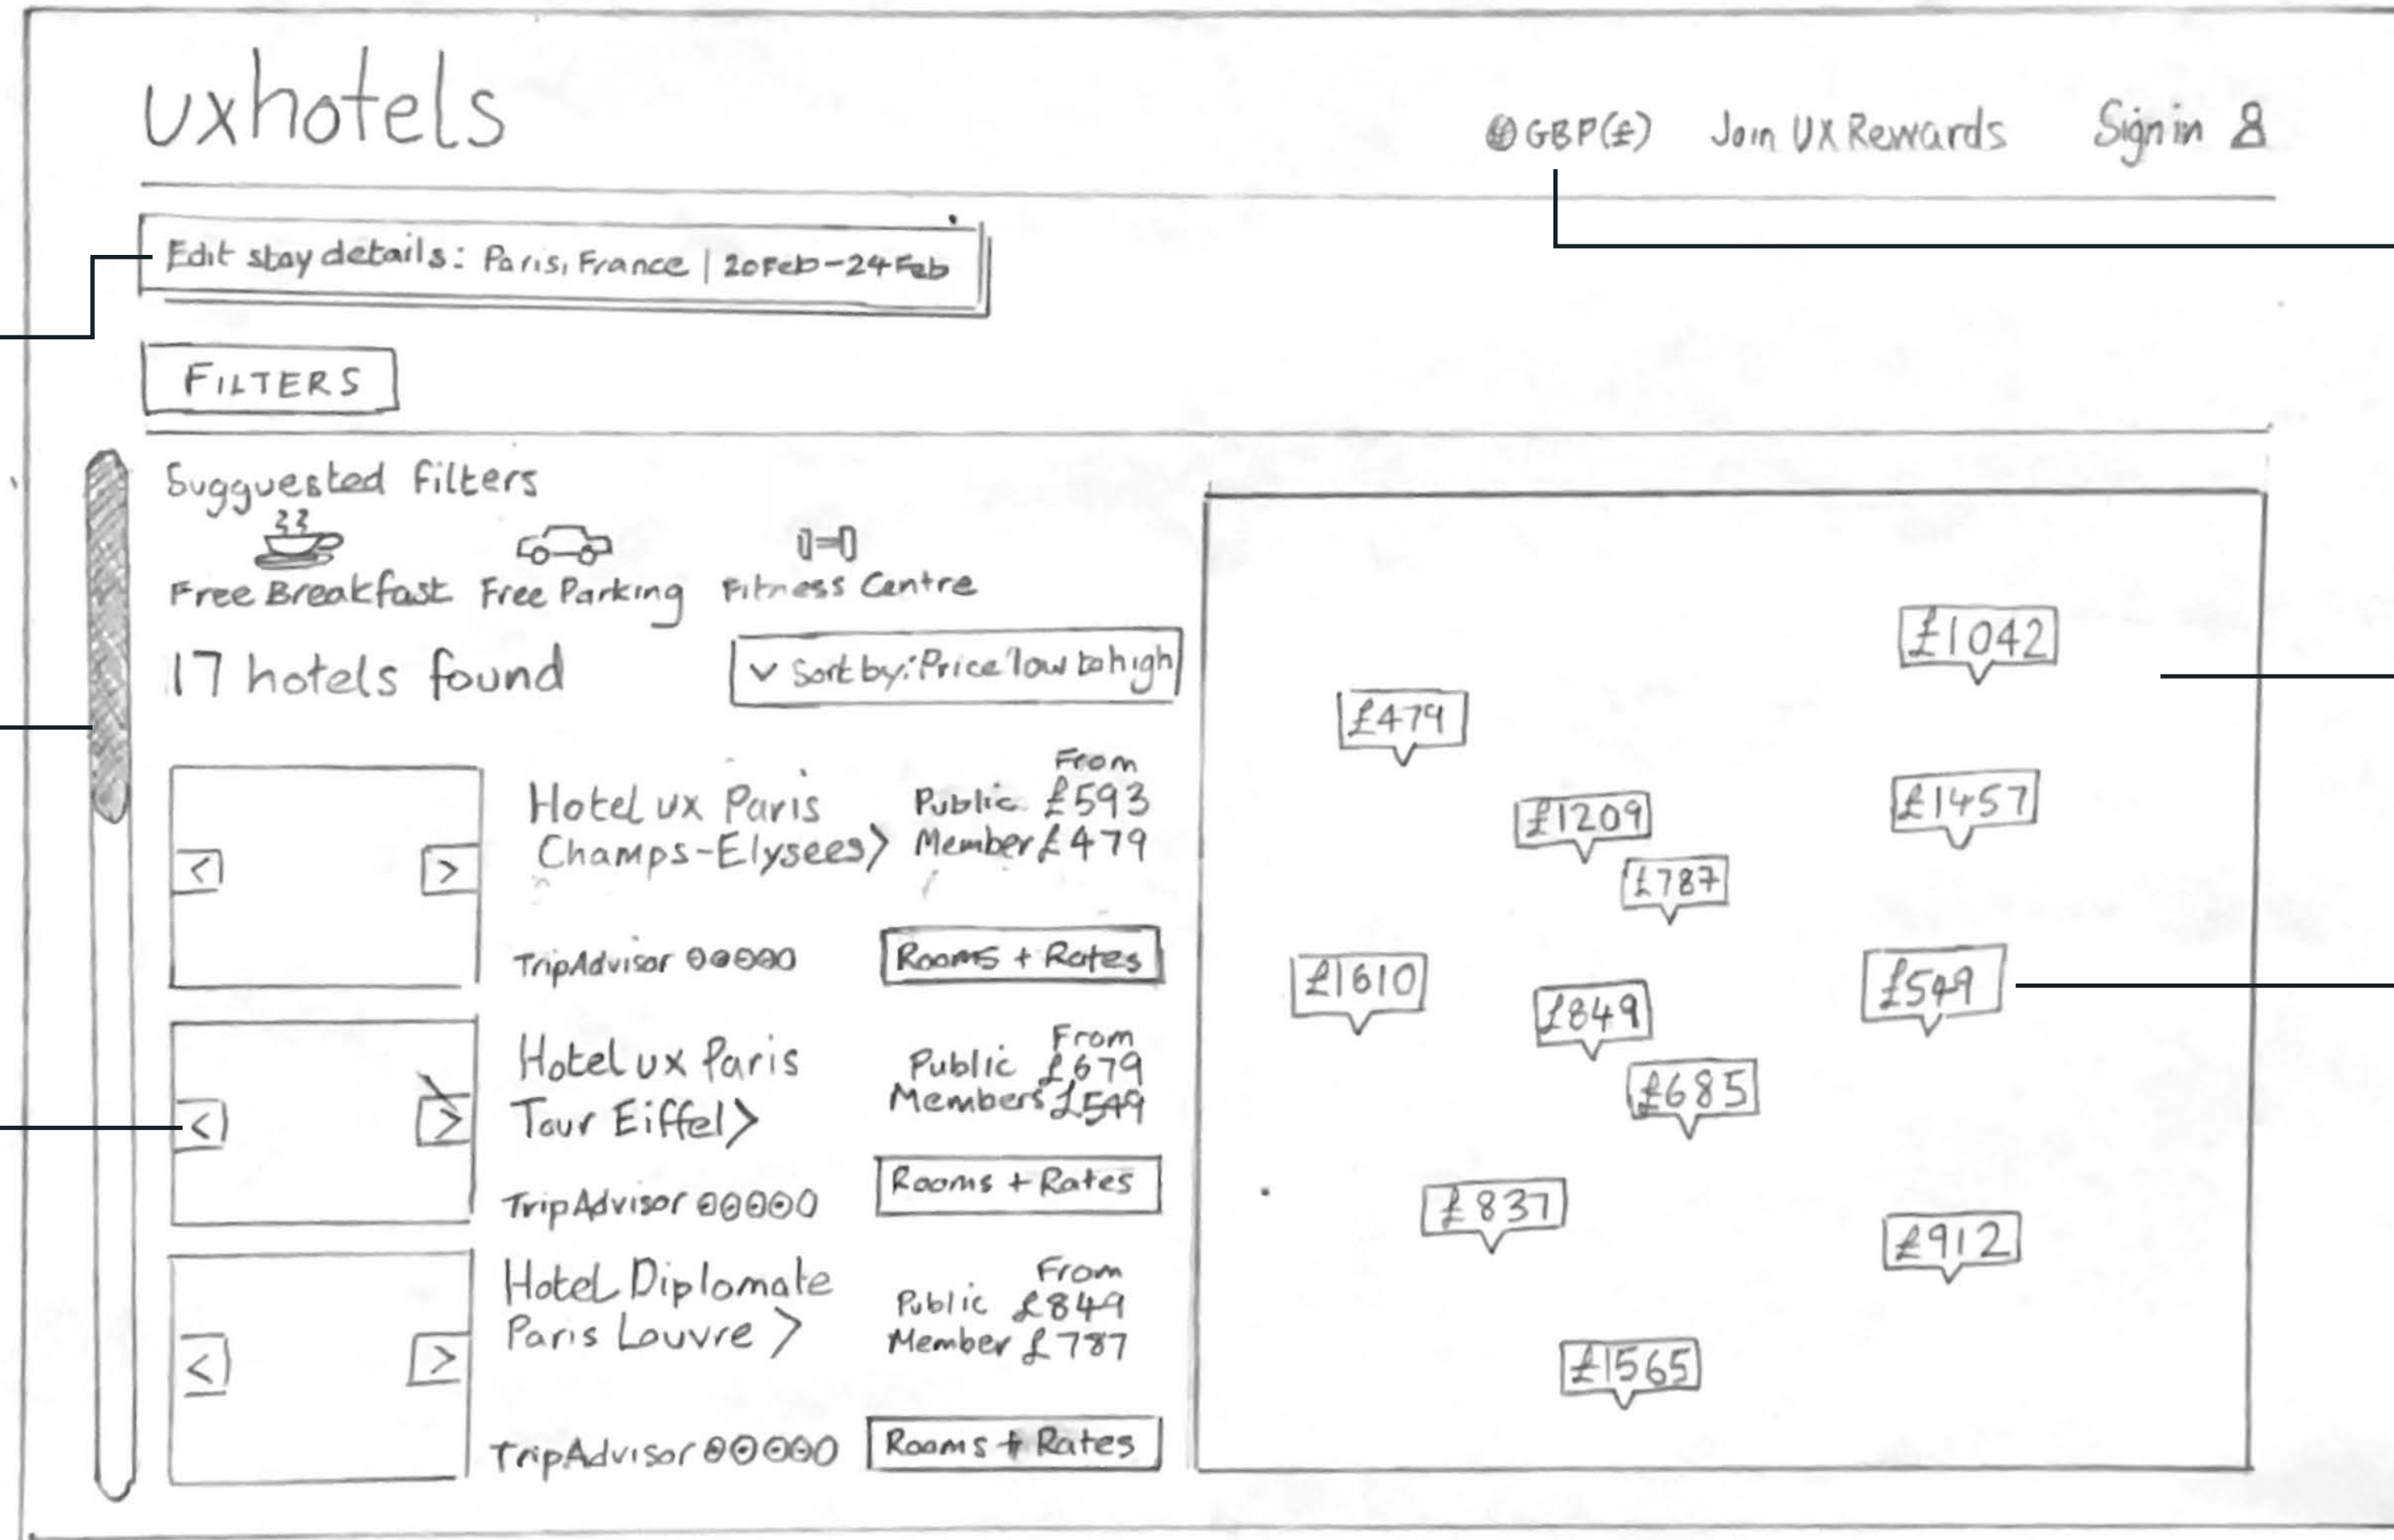 uxhotels
GBP(£) Join UX Rewards Sign in
Edit stay details: Paris, France | 20 Feb - 24 Feb
FILTERS
Sugguested filters
Free Breakfast Free Parking Fitness Centre
17 hotels found
Sort by: Price low to high
Hotel ux Paris
Champs-Elysees >
From
Public £593
Member £479
TripAdvisor
Rooms + Rates
Hotel ux Paris
Tour Eiffel >
From
Public £679
Members £549
TripAdvisor
Rooms + Rates
Hotel Diplomate
Paris Louvre >
From
Public £849
Member £787
TripAdvisor
Rooms + Rates
£1042
£479
£1457
£1209
£787
£1610
£849
£549
£685
£837
£912
£1565